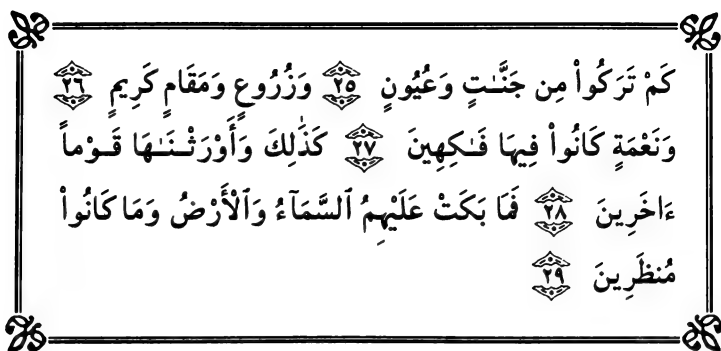 كَمْ تَرَكُوا۟ مِن جَنَّـٰتٍ وَعُيُونٍ ٢٥ وَزُرُوعٍ وَمَقَامٍ كَرِيمٍ ٢٦
وَنَعْمَةٍ كَانُوا۟ فِيهَا فَـٰكِهِينَ ٢٧ كَذَٰلِكَ وَأَوْرَثْنَـٰهَا قَوْماً
ءَاخَرِينَ ٢٨ فَمَا بَكَتْ عَلَيْهِمُ ٱلسَّمَآءُ وَٱلْأَرْضُ وَمَا كَانُوا۟
مُنظَرِينَ ٢٩